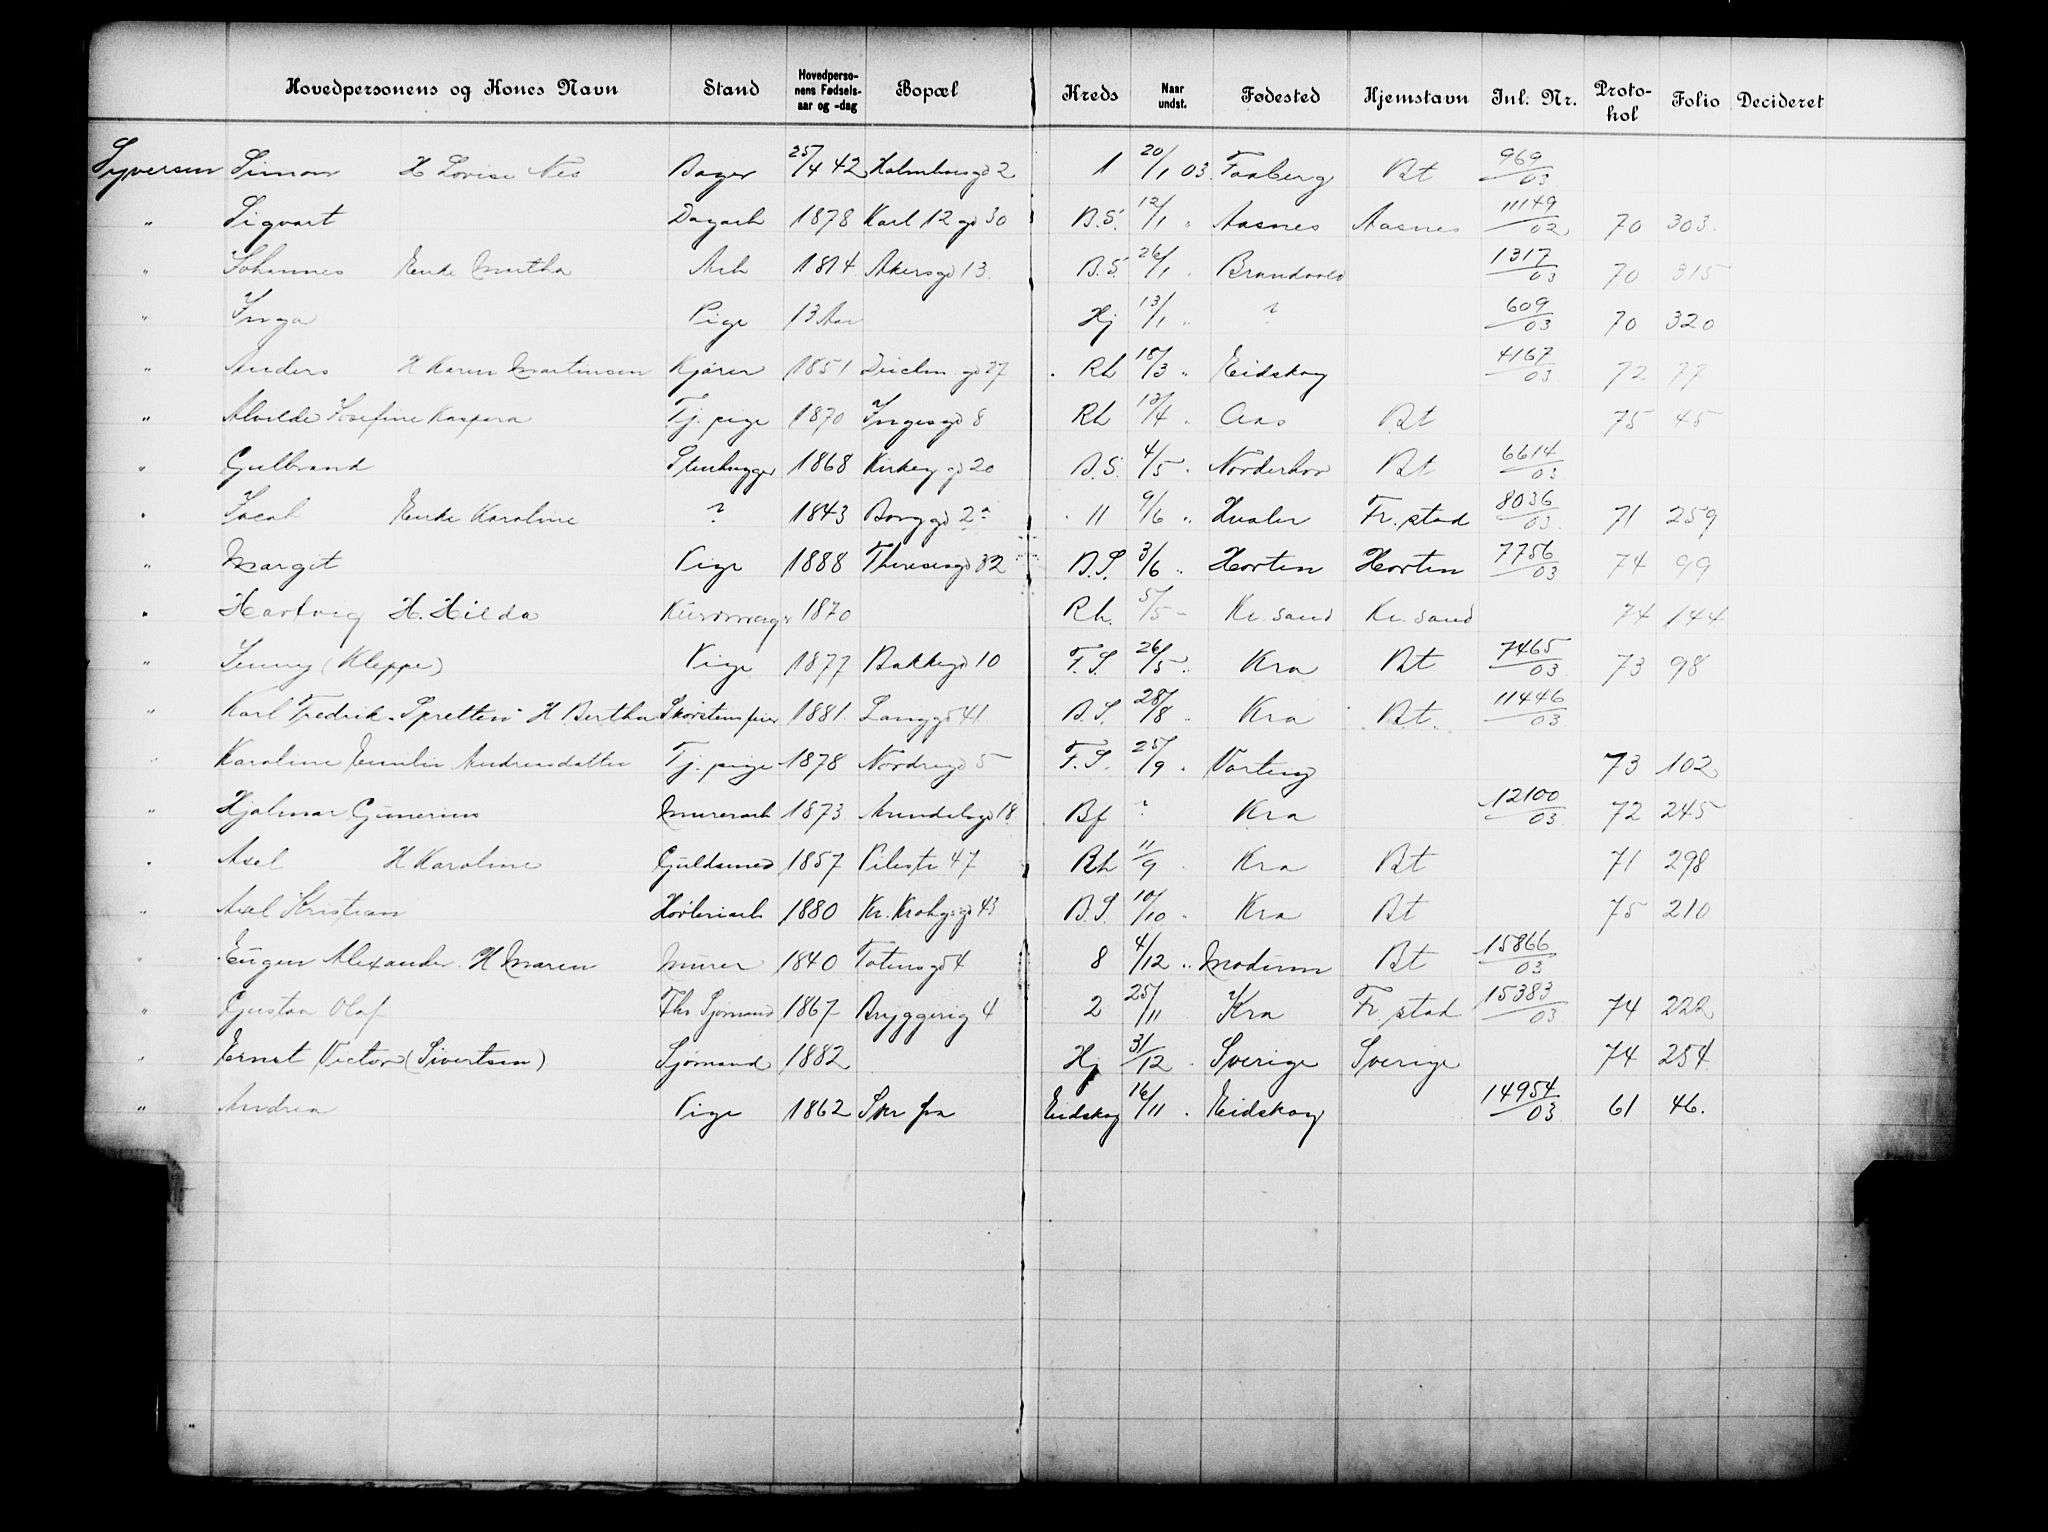 Hovedpersonens og Kones Navn Stand Hovedperso-nens Fødsels-aar og -dag Bopæl Kreds Naar undst. Fødested Hjemstavn Inl. Nr. Proto-kol Folio Decideret
Syversen Simon H Lovise Nes Bager 25/4 42 Holmboesgd 2 1 20/1 03. Faaberg Bt 969/03
" Sigvart Dagarb 1878 Karl 12 gd 30 B.S. 12/1 " Aasnes Aasnes 11149/02 70 303.
" Johannes Enke Martha Arb 1814 Akersgd 13. B.S. 26/1 " Brandvold 1317/03 70 315
" Inga Pige 13 Aar Hj 13/1 " ? 609/03 70 320
" Anders H Karen Martinsen Kjører 1851 Deichm. gd 27 Rh 18/3 " Eidskog 4167/03 72 77
" Alvilde Josefine Kaspara Tj. pige 1870 Ingesgd 8 Rh 12/4 " Aas Bt 75 45
" Gulbrand Stenhugger 1868 Kirkeg gd 20 B.S. 4/5 " Norderhov Bt 6614/03
" Jacob Enke Karoline ? 1843 Borggd 2a 11 9/6 " Hvaler Fr. stad 8036/03. 71 259
" Margit Pige 1888 Theresesgd 32 B.S. 3/6 " Horten Horten 7756/03 74 99
" Hartvig H. Hilda 1870 Rh. 5/5 - Kr. sand Kr. sand 74 144
" Jenny (Kleppe) Pige 1877 Bakkegd 10 F.S. 26/5 " Kra Bt 7465/03 73 98
" Karl Fredrik "Spretten" H. Bertha Skorstensfeier 1881. Langgd 41. B.S. 28/8 " Kra Bt. 11446/03
" Karoline Emilie Andreasdatter Tj. pige 1878 Nordregd 5 F.S. 25/9 " Varteig 73 102
" Hjalmar Gunerius Murerarb 1873 Arundelsgd 18 Bf ? Kra 12100/03 72 245
" Axel H Karoline Guldsmed 1857 Pilestr 47 Rh 11/9 Kra Bt 71 298
" Axel Kristian Høvleriarb 1880 Kr. Krohgsgd 43 B.S. 10/10 " Kra Bt 75 210
" Eugen Alexander. H Maren Murer 1840 Totensgd 4 8 4/12 " Modum Bt 15866/03
" Gustav Olaf Fhv Sjømand 1867 Bryggerig 4 2 25/11 ? Kra Fr. stad 15383/03 74 222
" Ernst Victor (Sivertsen) Sjømand 1882 Hj 31/12 " Sverige Sverige 74 254
" Andrea Pige 1862 Skr fra Eidskog 16/11 " Eidskog 14954/03 61 46.